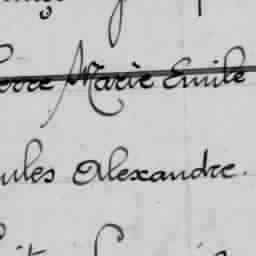 erre Marie Emile
ules Alexandre.